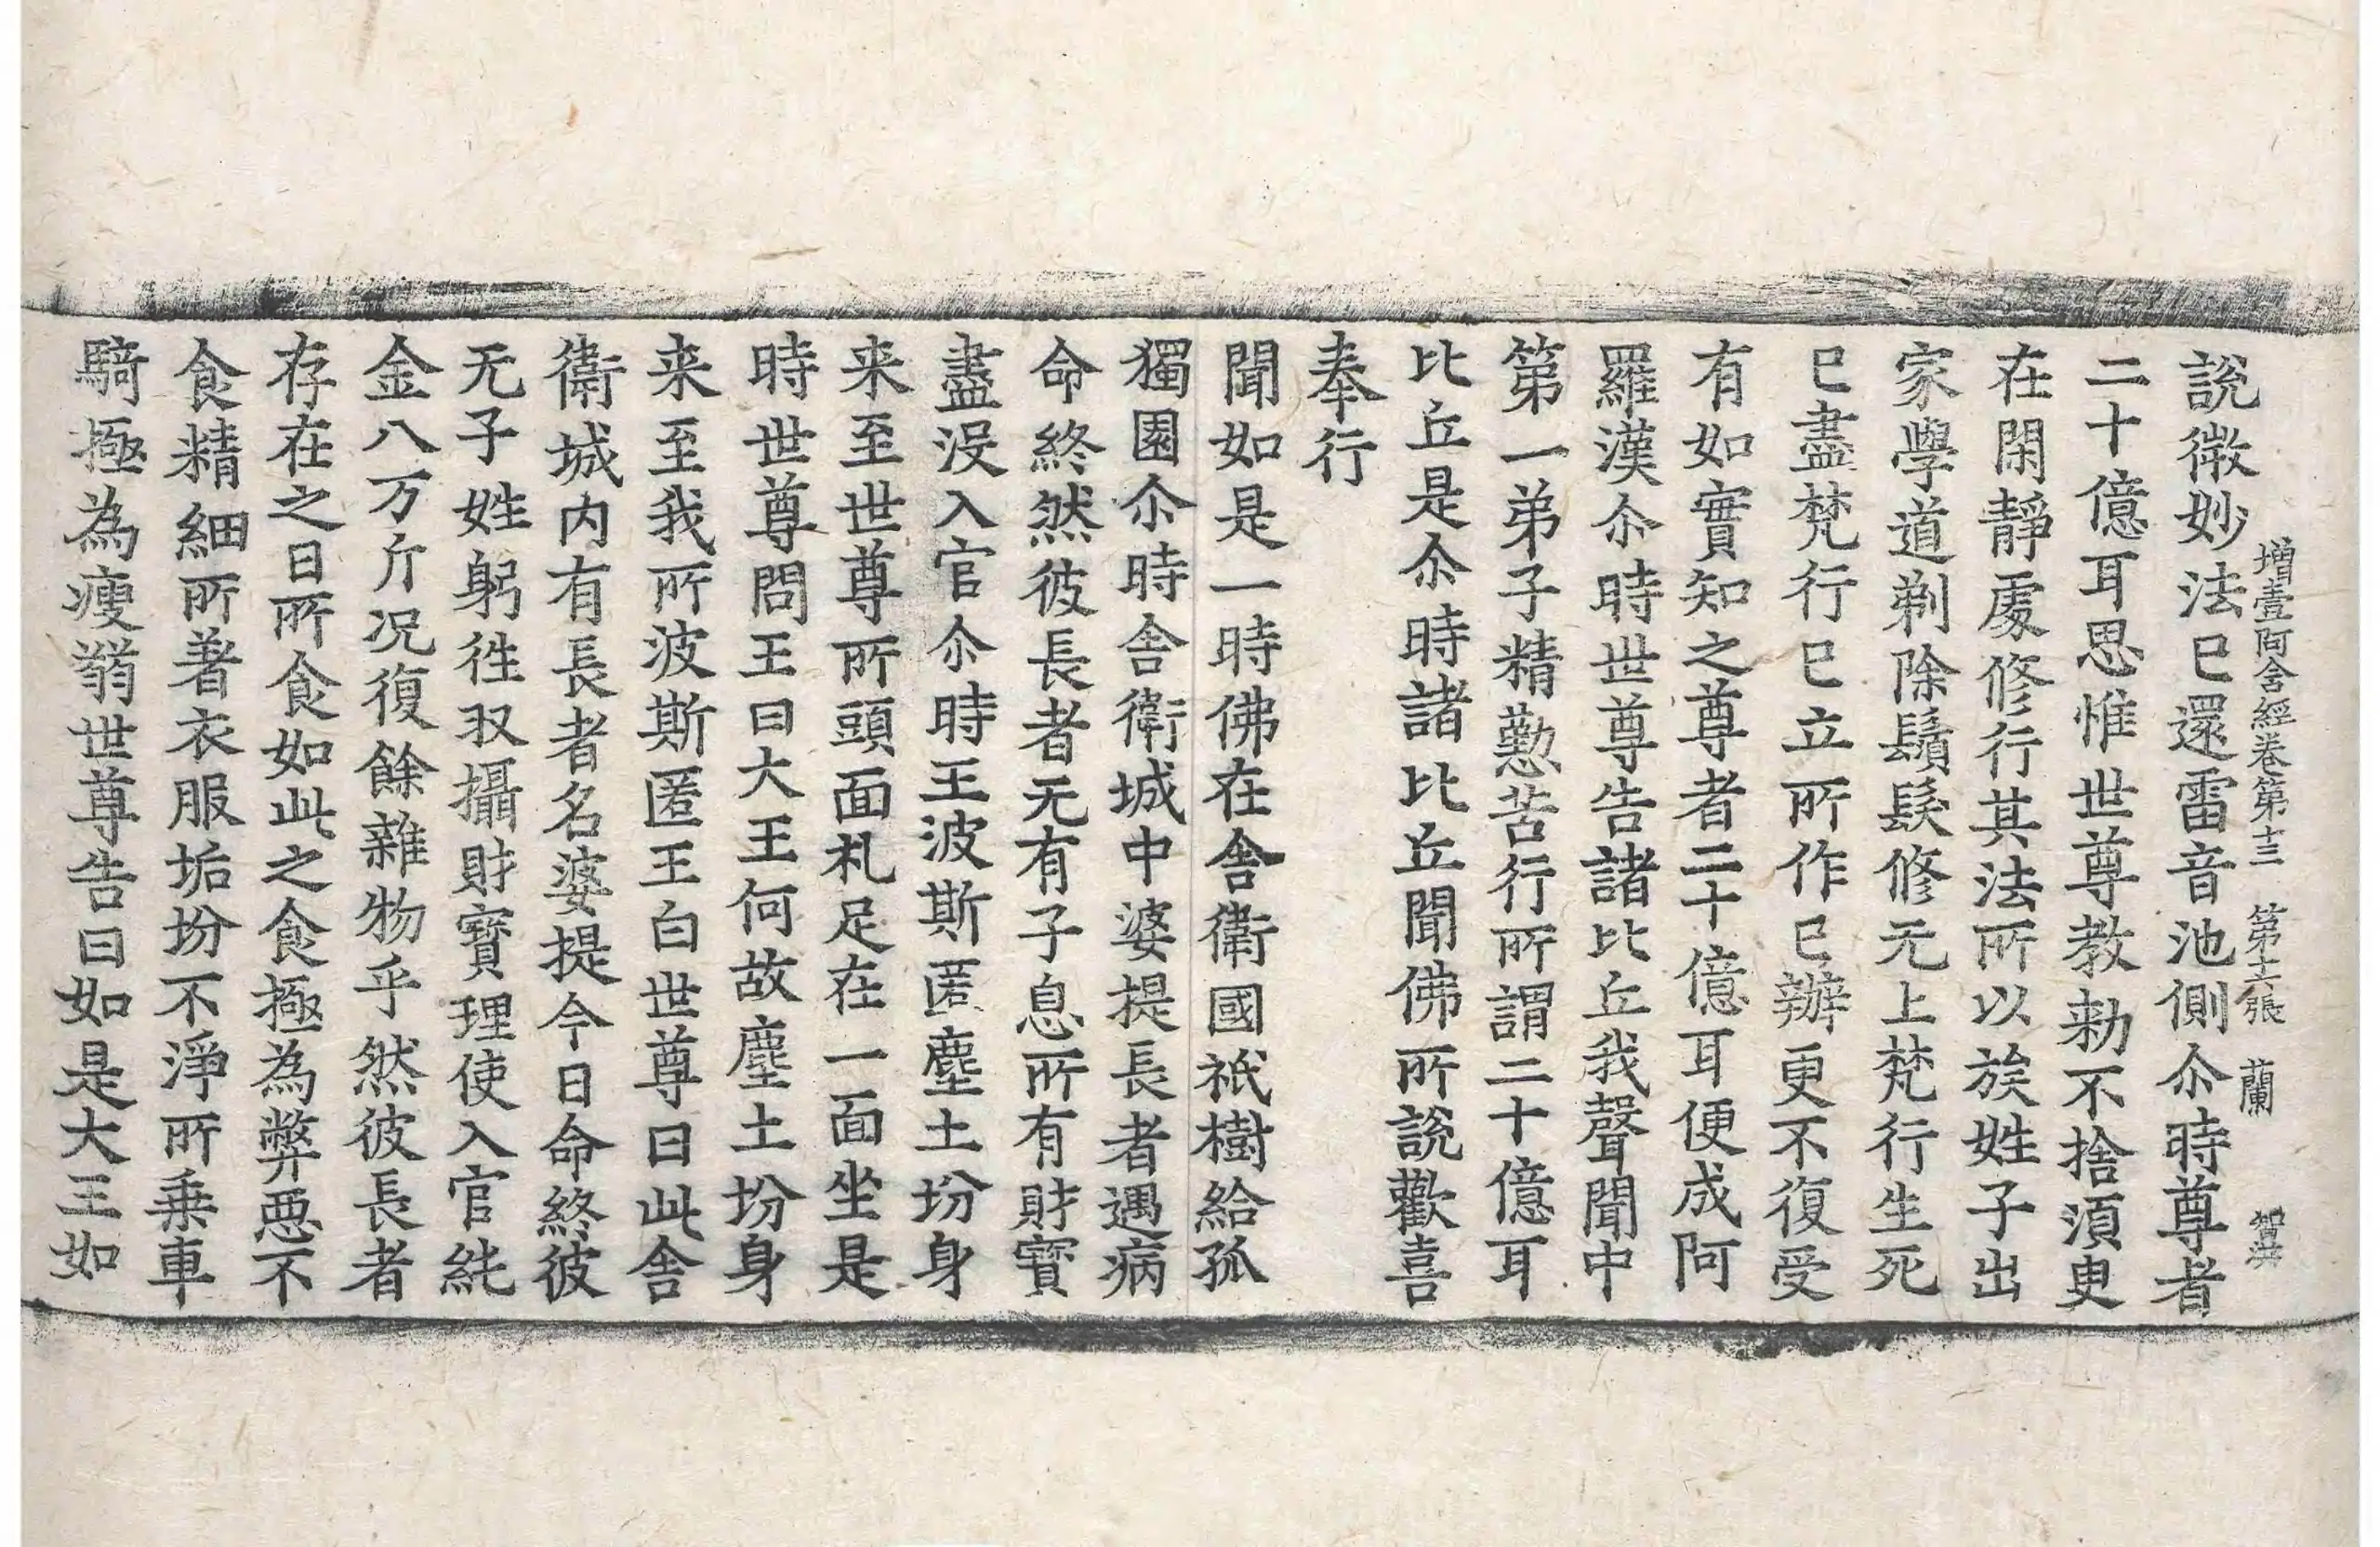 增壹阿含經卷第十三 第十六張 蘭
說微妙法已還雷音池側尒時尊者
二十億耳思惟世尊教勑不捨湏臾
在閑靜處修行其法所以族姓子出
家學道剃除鬚髮修无上梵行生死
已盡梵行已立所作已辦更不復受
有如實知之尊者二十億耳便成阿
羅漢尒時世尊告諸比丘我聲聞中
第一弟子精懃苦行所謂二十億耳
比丘是尒時諸比丘聞佛所說歡喜
奉行
聞如是一時佛在舍衛國祇樹給孤
獨園尒時舍衛城中婆提長者遇病
命終然彼長者无有子息所有財寶
盡没入官尒時王波斯匿塵土坋身
来至世尊所頭面礼足在一面坐是
時世尊問王曰大王何故塵土坋身
来至我所波斯匿王白世尊曰此舍
衛城内有長者名婆提今日命終彼
无子姓躬徃収攝財寶理使入官純
金八万斤况復餘雜物乎然彼長者
存在之日所食如此之食極為弊惡不
食精細所著衣服垢坋不淨所乗車
騎極為瘦𦐇世尊告曰如是大王如